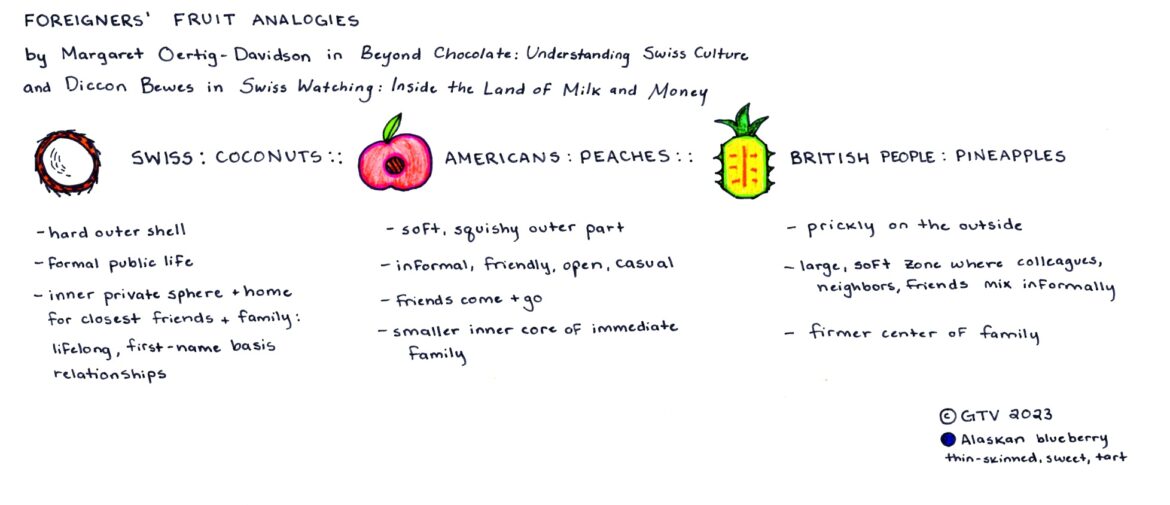 FOREIGNERS' FRUIT ANALOGIES
by Margaret Oertig-Davidson in Beyond Chocolate: Understanding Swiss Culture
and Diccon Bewes in Swiss Watching: Inside the Land of Milk and Money
SWISS: COCONUTS::
AMERICANS: PEACHES::
BRITISH PEOPLE: PINEAPPLES
- hard outer shell
- formal public life
- inner private sphere + home
for closest friends + family:
lifelong, first-name basis
relationships
- soft, squishy outer part
- informal, friendly, open, casual
- friends come + go
- smaller inner core of immediate
family
- prickly on the outside
- large, soft zone where colleagues,
neighbors, friends mix informally
- firmer center of family
© GTV 2023
Alaskan blueberry
thin-skinned, sweet, tart